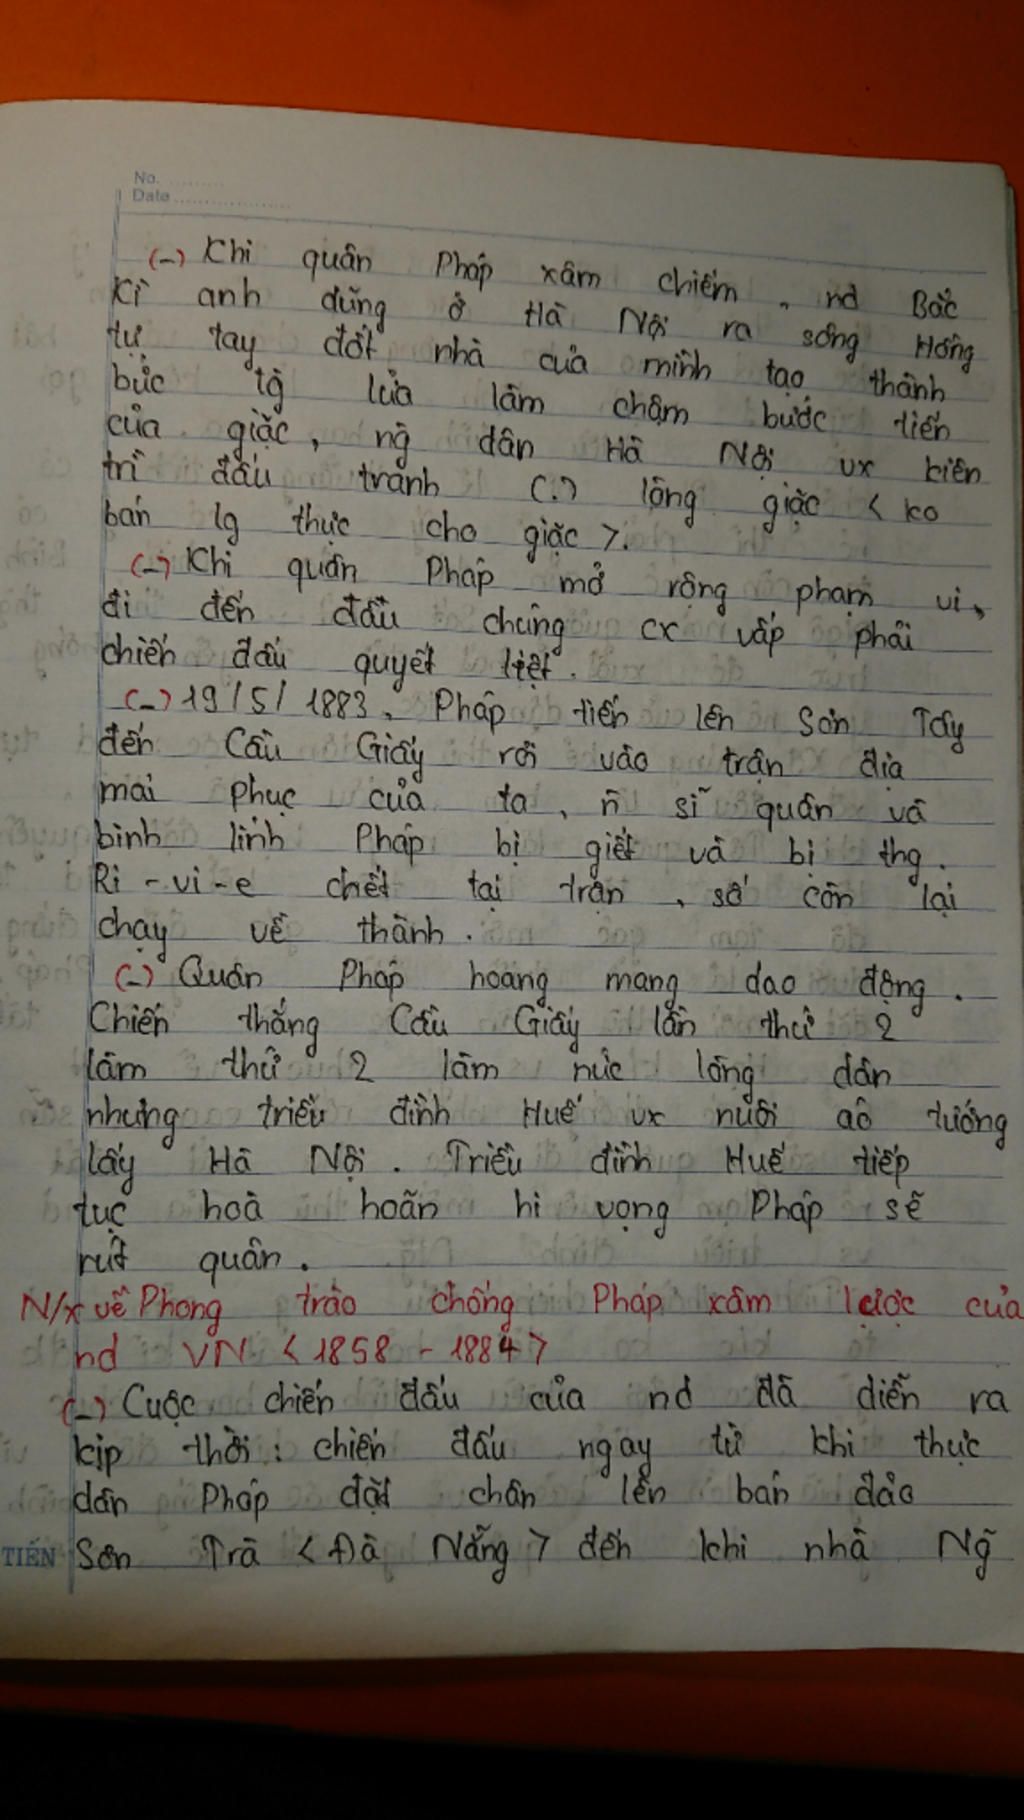 No. ..........
Date ....................
(-) Khi quân Pháp xâm chiếm, nd Bắc
Kì anh dũng ở Hà Nội ra sông Hồng
tự tay đốt nhà của mình tạo thành
bức tg lửa làm chậm bước tiến
của giặc, ng dân Hà Nội vx kiên
trì đấu tranh (.) lòng giặc < ko
bán lg thực cho giặc >.
(-) Khi quân Pháp mở rộng phạm vi,
đi đến đâu chúng cx vấp phải
chiến đấu quyết liệt.
(-) 19/5/1883, Pháp tiến lên Sơn Tây
đến Cầu Giấy rơi vào trận địa
mai phục của ta, n~ sĩ quân và
binh lính Pháp bị giết và bị thg.
Ri-vi-e chết tại trận, số còn lại
chạy về thành.
(-) Quân Pháp hoang mang dao động.
Chiến thắng Cầu Giấy lần thứ 2
làm thứ 2 làm nức lòng dân
nhưng triều đình Huế vx nuôi aỏ tưởng
lấy Hà Nội. Triều đình Huế tiếp
tục hoà hoãn hi vọng Pháp sẽ
rút quân.
N/x về Phong trào chống Pháp xâm lược của
nd VN < 1858 - 1884 >
(-) Cuộc chiến đấu của nd đã diễn ra
kịp thời: chiến đấu ngay từ khi thực
dân Pháp đặt chân lên bán đảo
TIẾN Sơn Trà < Đà Nẵng > đến khi nhà Ng~